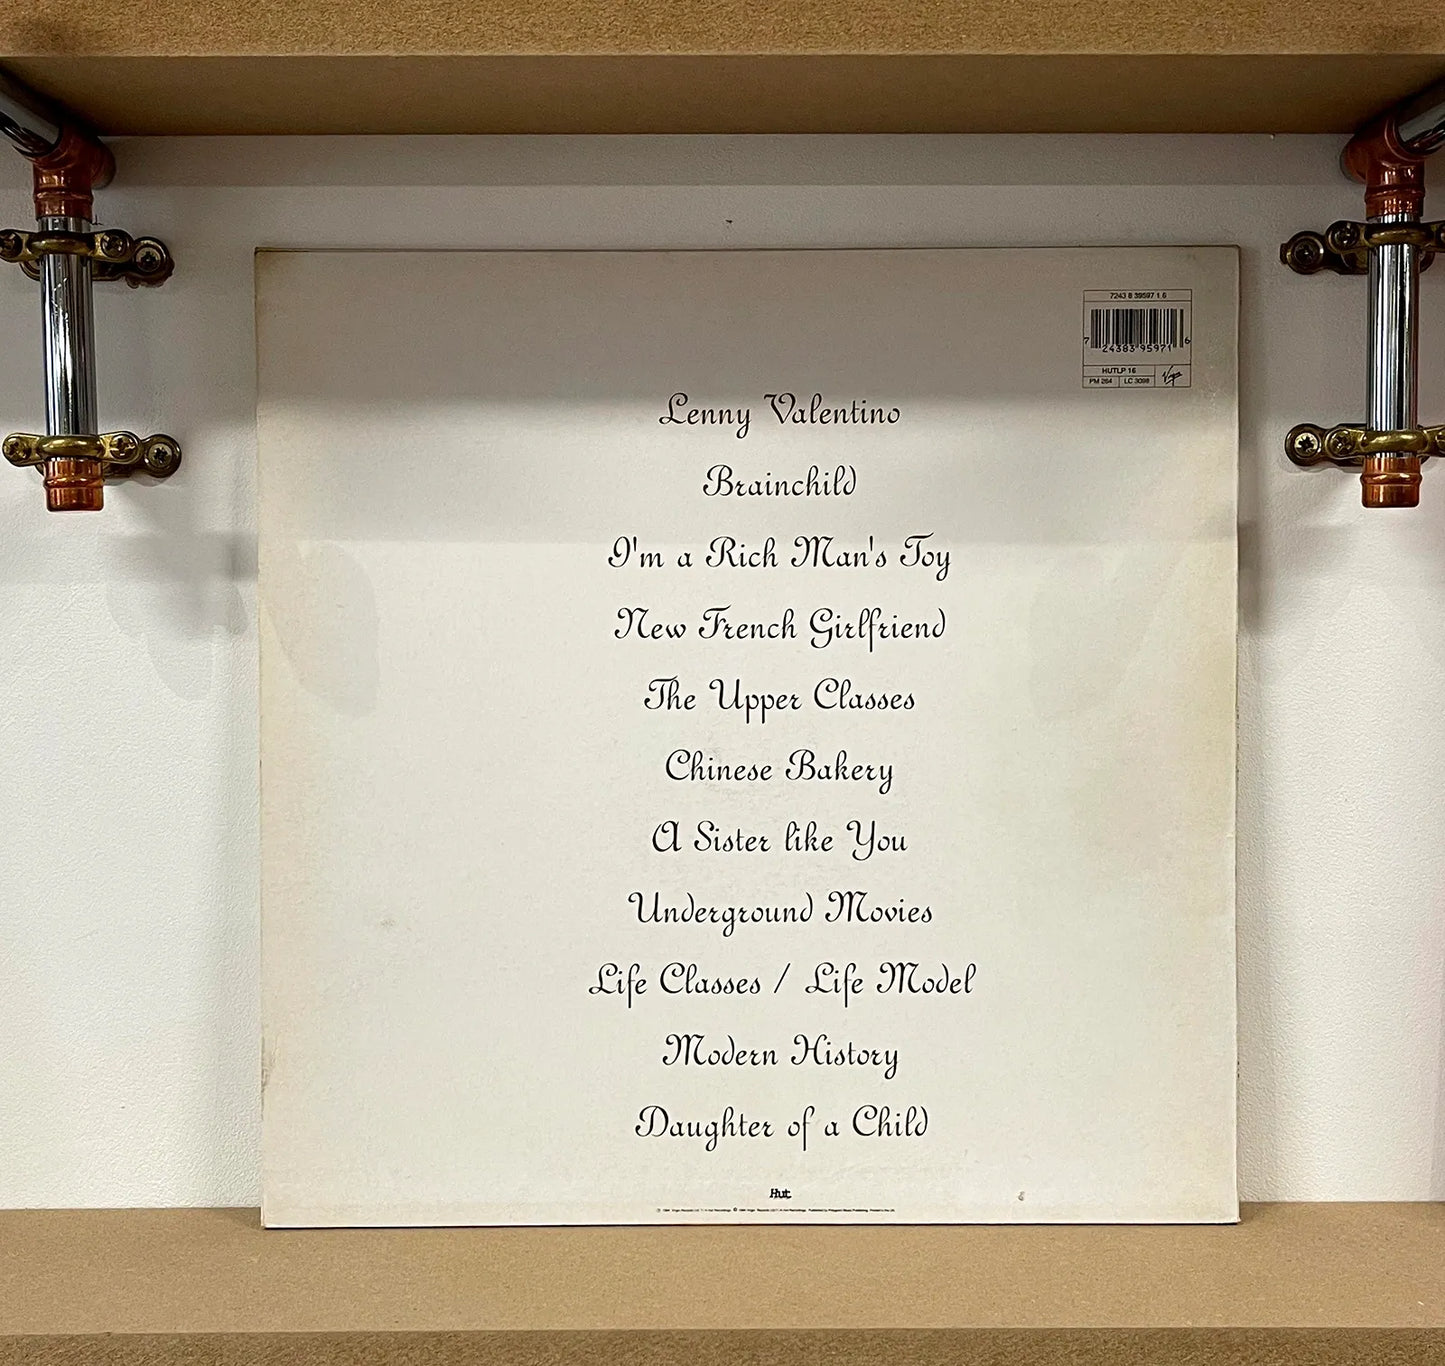 7243 8 39597 1 6
7 24383 95971 6
HUTLP 16
PM 264 LC 3098 Virgin
Lenny Valentino
Brainchild
I'm a Rich Man's Toy
New French Girlfriend
The Upper Classes
Chinese Bakery
A Sister like You
Underground Movies
Life Classes / Life Model
Modern History
Daughter of a Child
Hut